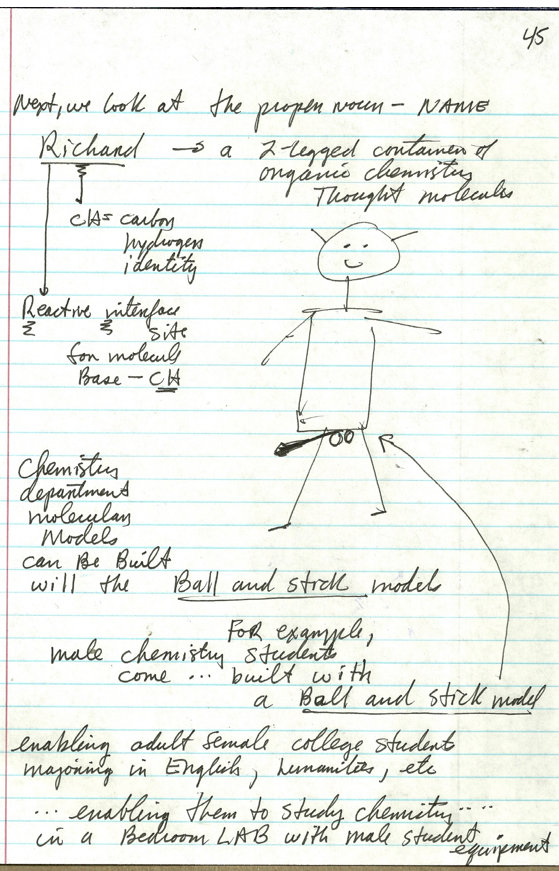 45
Next, we look at the proper noun - NAME
Richard → a 2-legged container of
organic chemistry
Thought molecules
CH = carbon
hydrogen
identity
Reactive interface
site
for molecule
Base - CH
Chemistry
department
molecular
Models
can Be Built
will the Ball and stick models
For example,
male chemistry students
come ... built with
a Ball and stick model
enabling adult female college student
majoring in English, humanities, etc
... enabling them to study chemistry ....
in a Bedroom LAB with male student
equipment